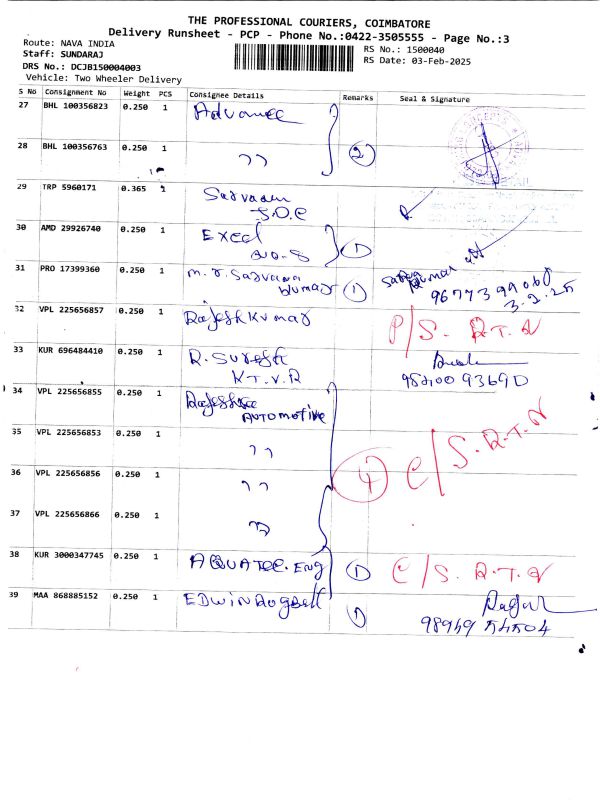 THE PROFESSIONAL COURIERS, COIMBATORE
Delivery Runsheet - PCP - Phone No.:0422-3505555 - Page No.:3
Route: NAVA INDIA
RS No.: 1500040
Staff: SUNDARAJ
RS Date: 03-Feb-2025
DRS No.: DCJB150004003
Vehicle: Two Wheeler Delivery
S No Consignment No Weight PCS Consignee Details Remarks Seal & Signature
27 BHL 100356823 0.250 1 Advance
28 BHL 100356763 0.250 1 " 2
29 TRP 5960171 0.365 1
30 AMD 29926740 0.250 1 Excel 1
31 PRO 17399360 0.250 1 M.R. Saravana Kumar 1
9677399060
3.2.25
32 VPL 225656857 0.250 1 Rajesh Kumar P/S. R.T.N
33 KUR 696484410 0.250 1 R. Suresh
K.T.V.R
34 VPL 225656855 0.250 1 AUTOMOTIVE
35 VPL 225656853 0.250 1 "
36 VPL 225656856 0.250 1 " 4 C/S. R.T.N
37 VPL 225656866 0.250 1 "
38 KUR 3000347745 0.250 1 AQUATEC. ENG 1 C/S. R.T.N
39 MAA 868885152 0.250 1 1